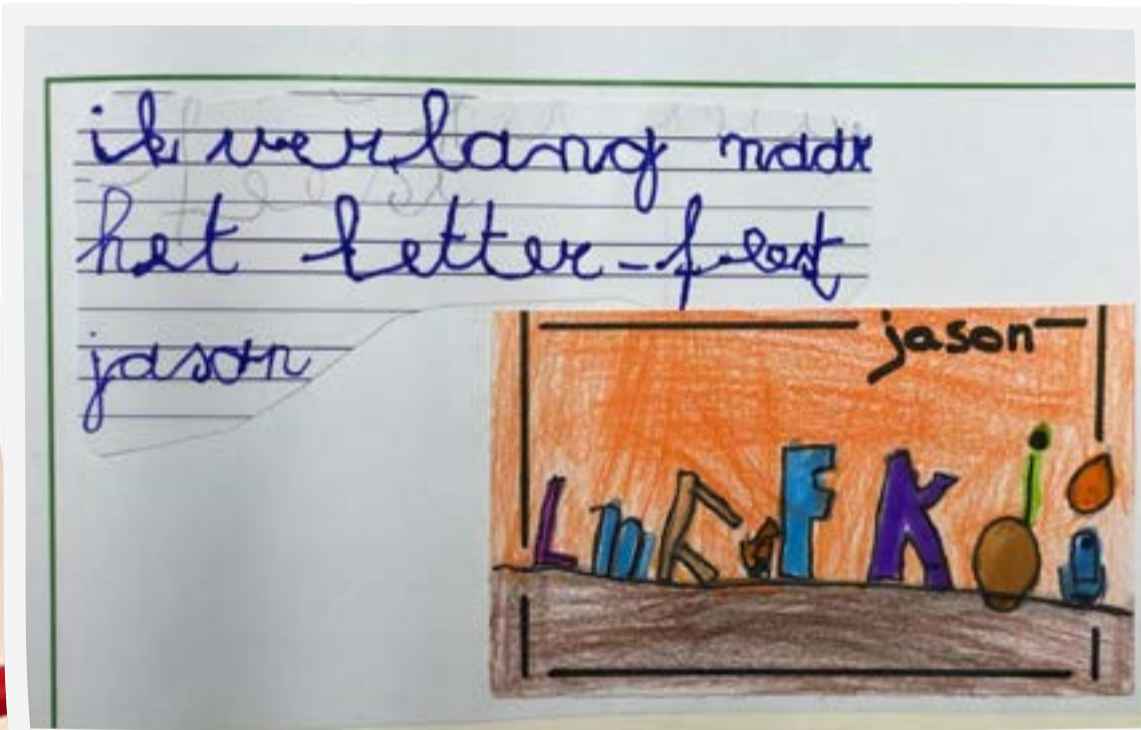 ik verlang naar
het letter-feest
jason
jason